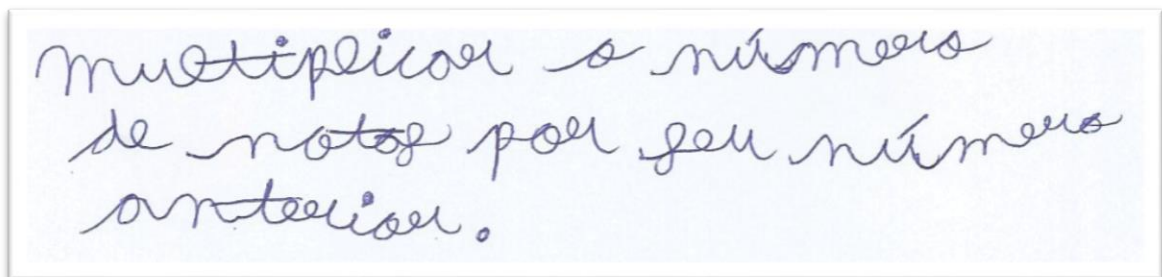 multiplicar o número
de notas por seu número
anterior.